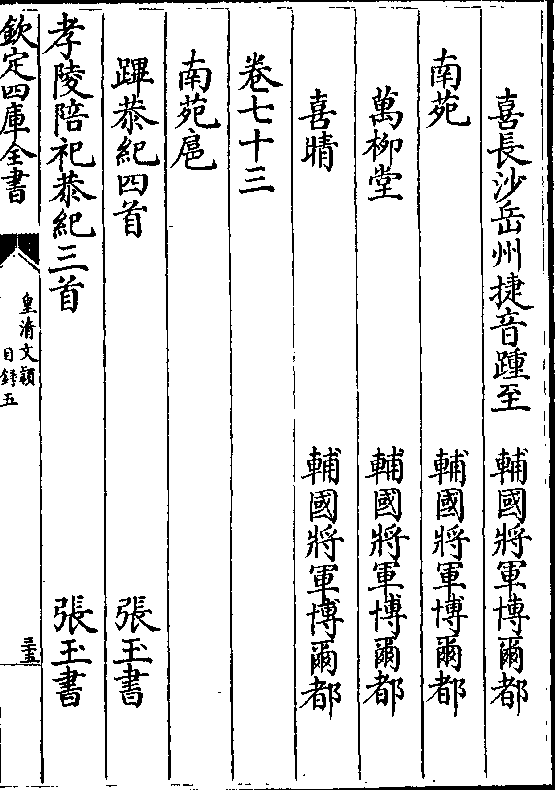 喜長沙岳州捷音踵至　輔國將軍博爾都
南苑　輔國將軍博爾都
萬柳堂　輔國將軍博爾都
喜晴　輔國將軍博爾都
卷七十三
南苑扈
蹕恭紀四首　張玉書
孝陵陪祀恭紀三首　張玉書
欽定四庫全書
皇清文穎
目録五
三十五